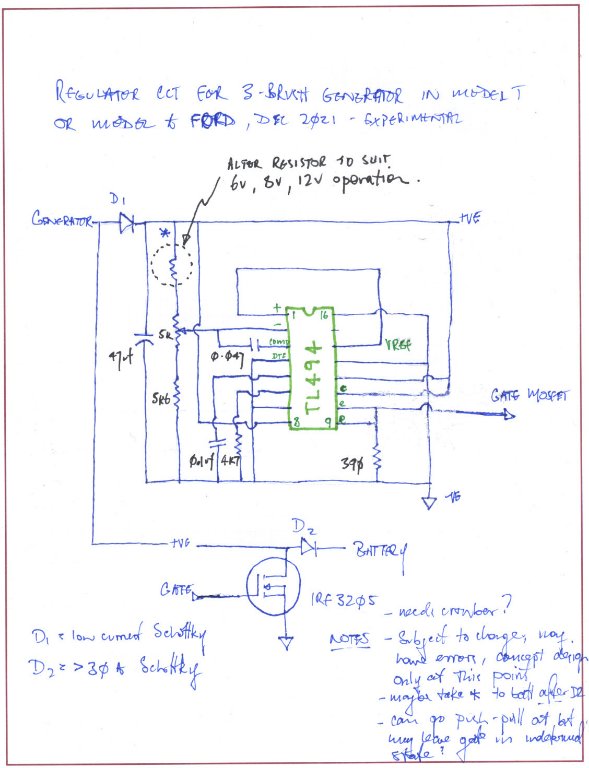 REGULATOR CCT FOR 3-BRUSH GENERATOR IN MODEL T
OR MODEL A FORD, DEC 2021 - EXPERIMENTAL
ALTER RESISTOR TO SUIT
6v, 8v, 12v operation.
D1
GENERATOR
+VE
*
+
1 16
-
5K
COMP
VREF
0.047
DTC
47uf
TL494
5K6
c
GATE MOSFET
c
8 9 e
0.1uf 4K7
390
-VE
D2
+VE
BATTERY
GATE
IRF3205
- needs crowbar?
D1 = low current Schottky
NOTES - Subject to change, may
have errors, concept design
D2 = >30A Schottky
only at this point
- maybe take * to batt after D2
- can go push-pull at but
may leave gate in undefined
state?